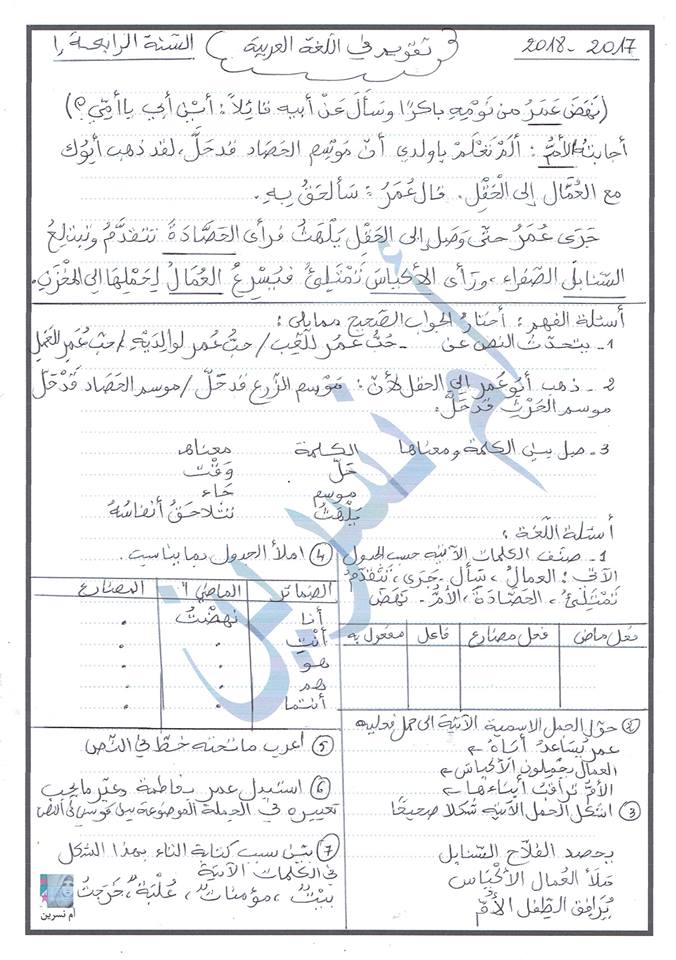 2017 - 2018
تقويم في اللغة العربية
السنة الرابعة
(نَهَضَ عُمَرُ من نَوْمِهِ باكرًا وسَأَلَ عَنْ أبيه قائلاً: أيْنَ أبي يا أمّي؟)
أجابتهُ الأمُّ: ألمْ تَعْلَمْ يا ولدي أنّ مَوْسِمَ الحَصَاد قد حَلَّ، لقد ذهب أبُوك
مع العُمَّالِ إلى الْحَقْلِ. قال عُمَرُ: سَألحَقُ بِهِ.
جَرَى عُمَرُ حتّى وَصَلَ إلى الحَقْلِ يَلْهَثُ فرأى الحَصَّادَةَ تتقدَّمُ وتبتلِعُ
السّنابلَ الصّفراء، ورَأى الأكْيَاسَ تَمْتَلِئُ فيُسْرِعُ العُمّالُ لِحَمْلِهَا إلى المَخْزَنِ.
أسئلة الفهم: أختار الجواب الصّحيح ممّا يلي:
1- يتحدّث النص عن - حُبُّ عُمَرَ للّعِب / حبُّ عُمر لوالِدَيْهِ / حبّ عُمَرٍ للعَمَل
2- ذهب أبُو عُمر إلى الحقل لأنّ: مَوْسِم الزّرع قد حَلَّ / موسم الحَصَاد قَدْ حَلّ
موسم الحَرْثِ قَدْ حَلَّ.
3- صل بين الكلمة ومعناها الكلمة معناها
حَلَّ وَقْت
موسم جَاء
يَلْهَثُ تتلاحَقُ أنفاسُهُ
أسئلة اللّغة:
1- صنّف الكلمات الآتية حسب الجدول
الآتي: العمالُ، سَأل، جَرَى، تَتَقَدَّمُ
تَمْتَلِئُ، الحَصَّادَةَ، الأمُّ - نَهَضَ
فعل ماض | فعل مضارع | فاعل | مفعول به
2 حوّل الجمل الاسمية الآتية إلى جمل فعلية
عمرُ يُسَاعدُ أبَاهُ
العمال يحملون الأكياس
الأمّ ترافقُ أبناءها
3 اشكل الجمل الآتية شكلا صحيحًا
يحصد الفلاح السّنابل
مَلَأ العُمال الأكْيَاس
يُرَافِق الطّفل الأمّ
4 املأ الجدول بما يناسب.
الضمائر | الماضي | المضارع
أنا نهضْتُ .
أنْتِ . .
هو . .
هم . .
أنتما . .
5 أعرب ما تحته خطّ في النّص
6 استبدل عمر بـ فاطمة وغيّر ما يجب
تغييره في الجملة الموضوعة بين قوسين في النص
7 بيّن سبب كتابة التاء بهذا الشكل
في الكلمات الآتية
بيْت، مؤمنات، عُلْبَة، خَرَجَتْ
أم نسرين
أم نسرين